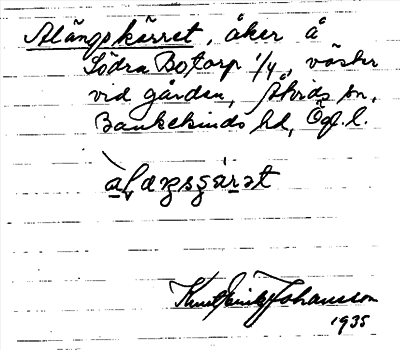 Alängskärret, åker å
Södra Botorp 1/4, väster
vid gården, Åtvids sn,
Bankekinds hd, Ögl. l.
Knut Erik Johansson
1935